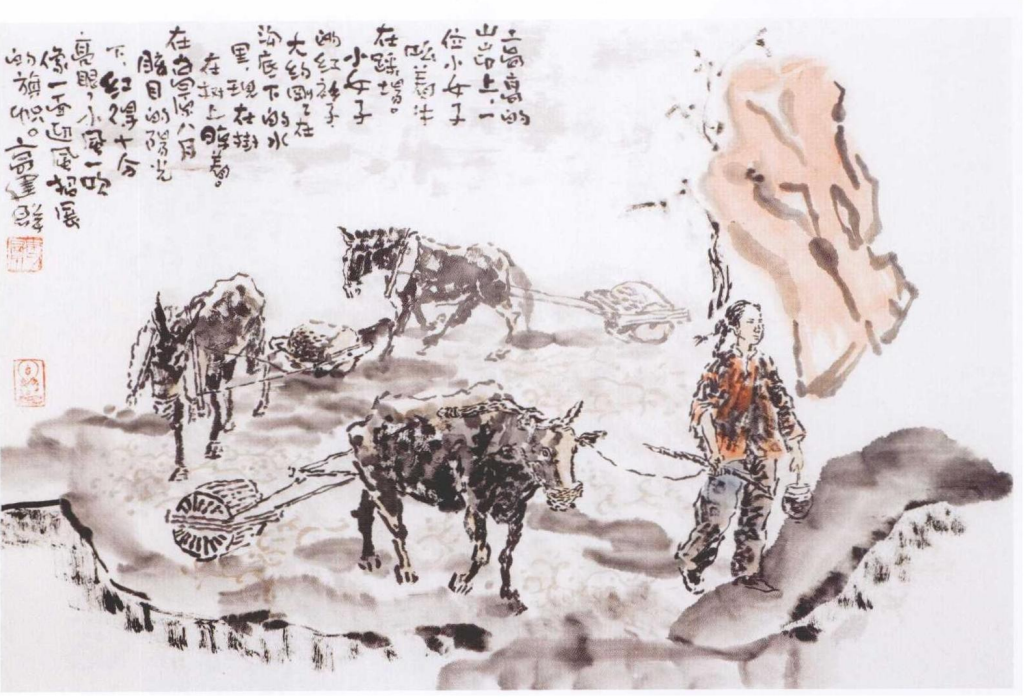 高高的
山峁上，一
位小女子
吆着牛
在踩場。
小女子
的红袄子
大约刚刚在
沟底下的水
里，现在掛
在树上晾着。
在高原八月
目的陽光
下，红得十分
亮眼，小風一吹
像一面迎風招展
的旗帜。高建群